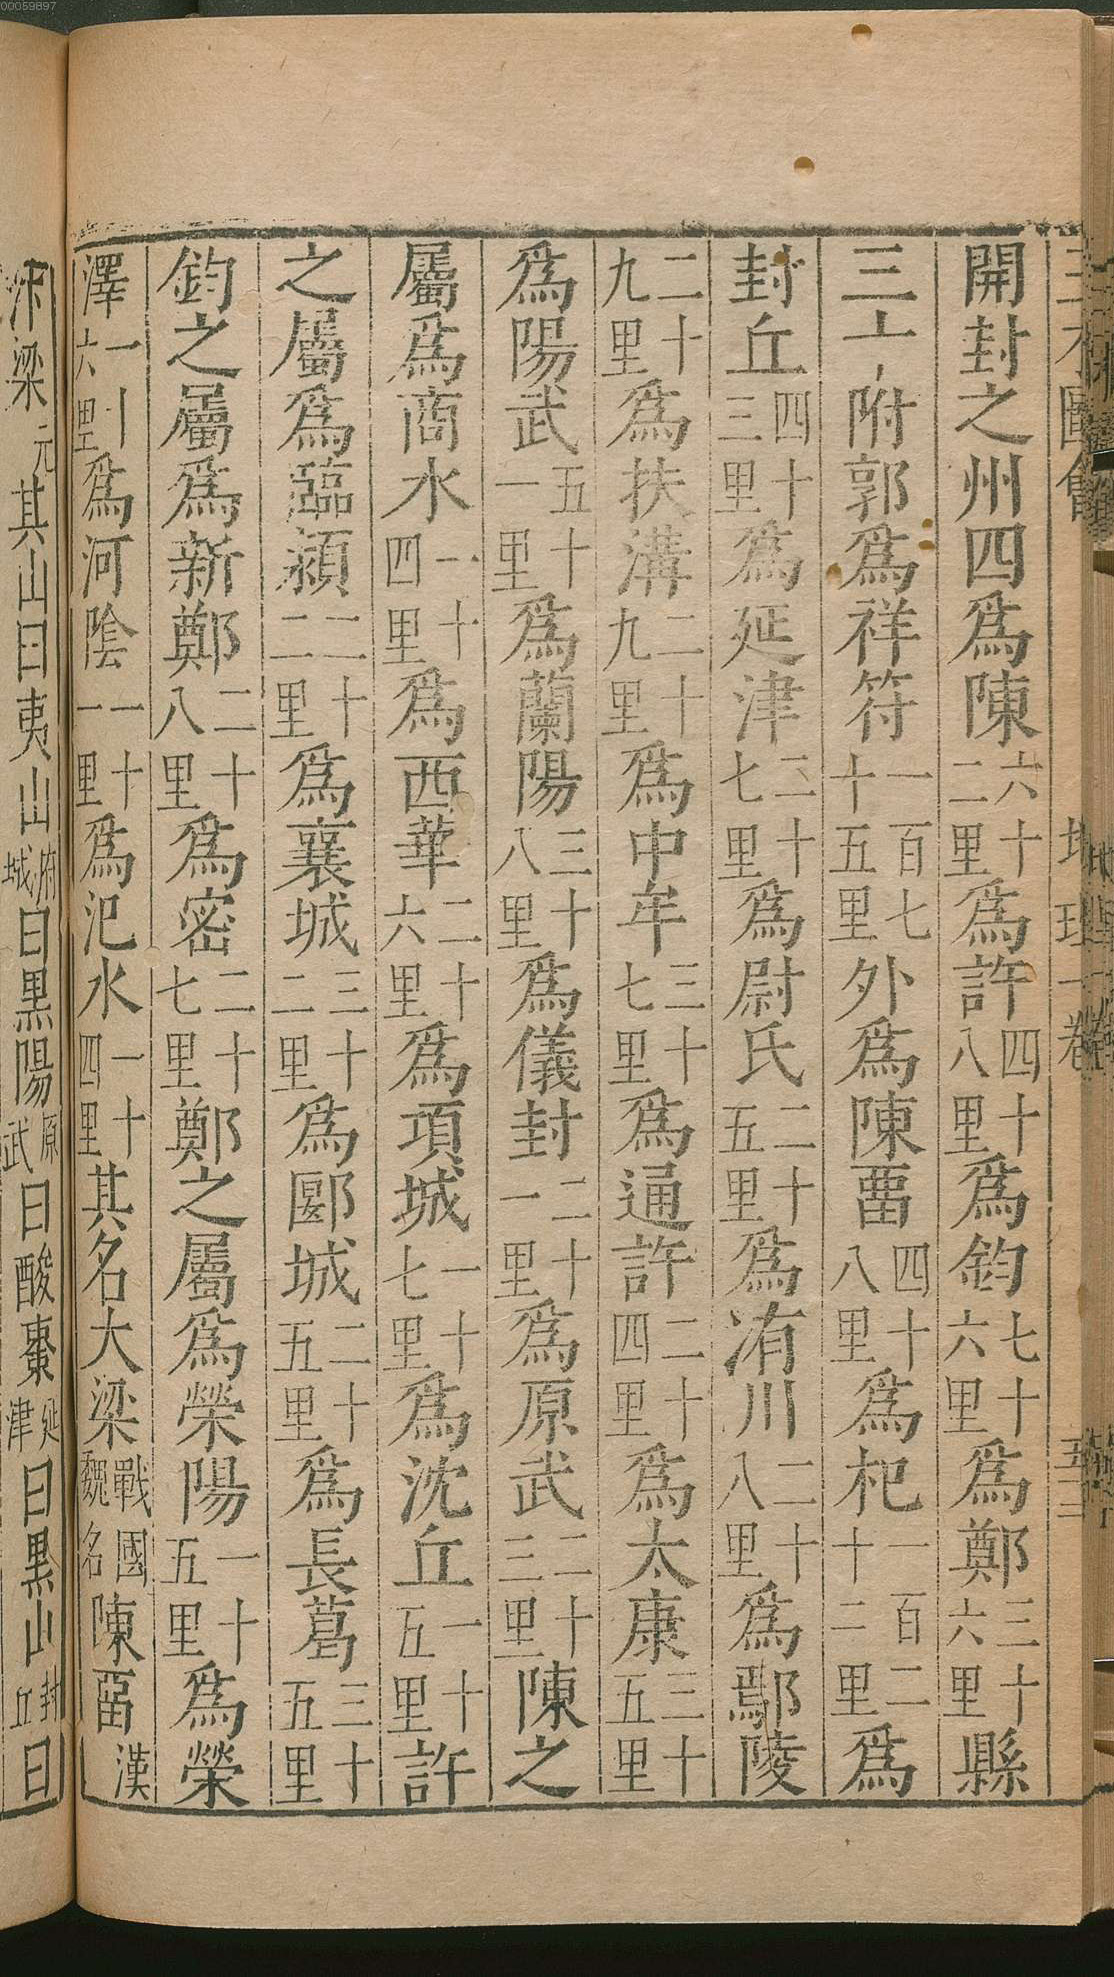 三才圖會　地理一卷
開封之州四爲陳六十二里爲許四十八里爲鈞七十六里爲鄭三十六里縣
三十附郭爲祥符一百七十五里外爲陳畱四十八里爲杞一百二十二里爲
封丘四十三里爲延津二十七里爲尉氏二十五里爲洧川二十八里爲鄢陵
二十九里爲扶溝二十九里爲中牟三十七里爲通許二十四里爲太康三十五里
爲陽武五十一里爲蘭陽三十八里爲儀封二十一里爲原武二十三里陳之
屬爲商水一十四里爲西華二十六里爲項城一十七里爲沈丘一十五里許
之屬爲臨潁二十二里爲襄城三十二里爲郾城二十五里爲長葛三十五里
鈞之屬爲新鄭二十八里爲密二十七里鄭之屬爲榮陽一十五里爲榮
澤一十六里爲河陰一十一里爲汜水一十四里其名大梁戰國魏名陳畱漢
汴梁元其山曰夷山府城曰黑陽原武曰酸棗延津曰黑山封丘曰
00059897